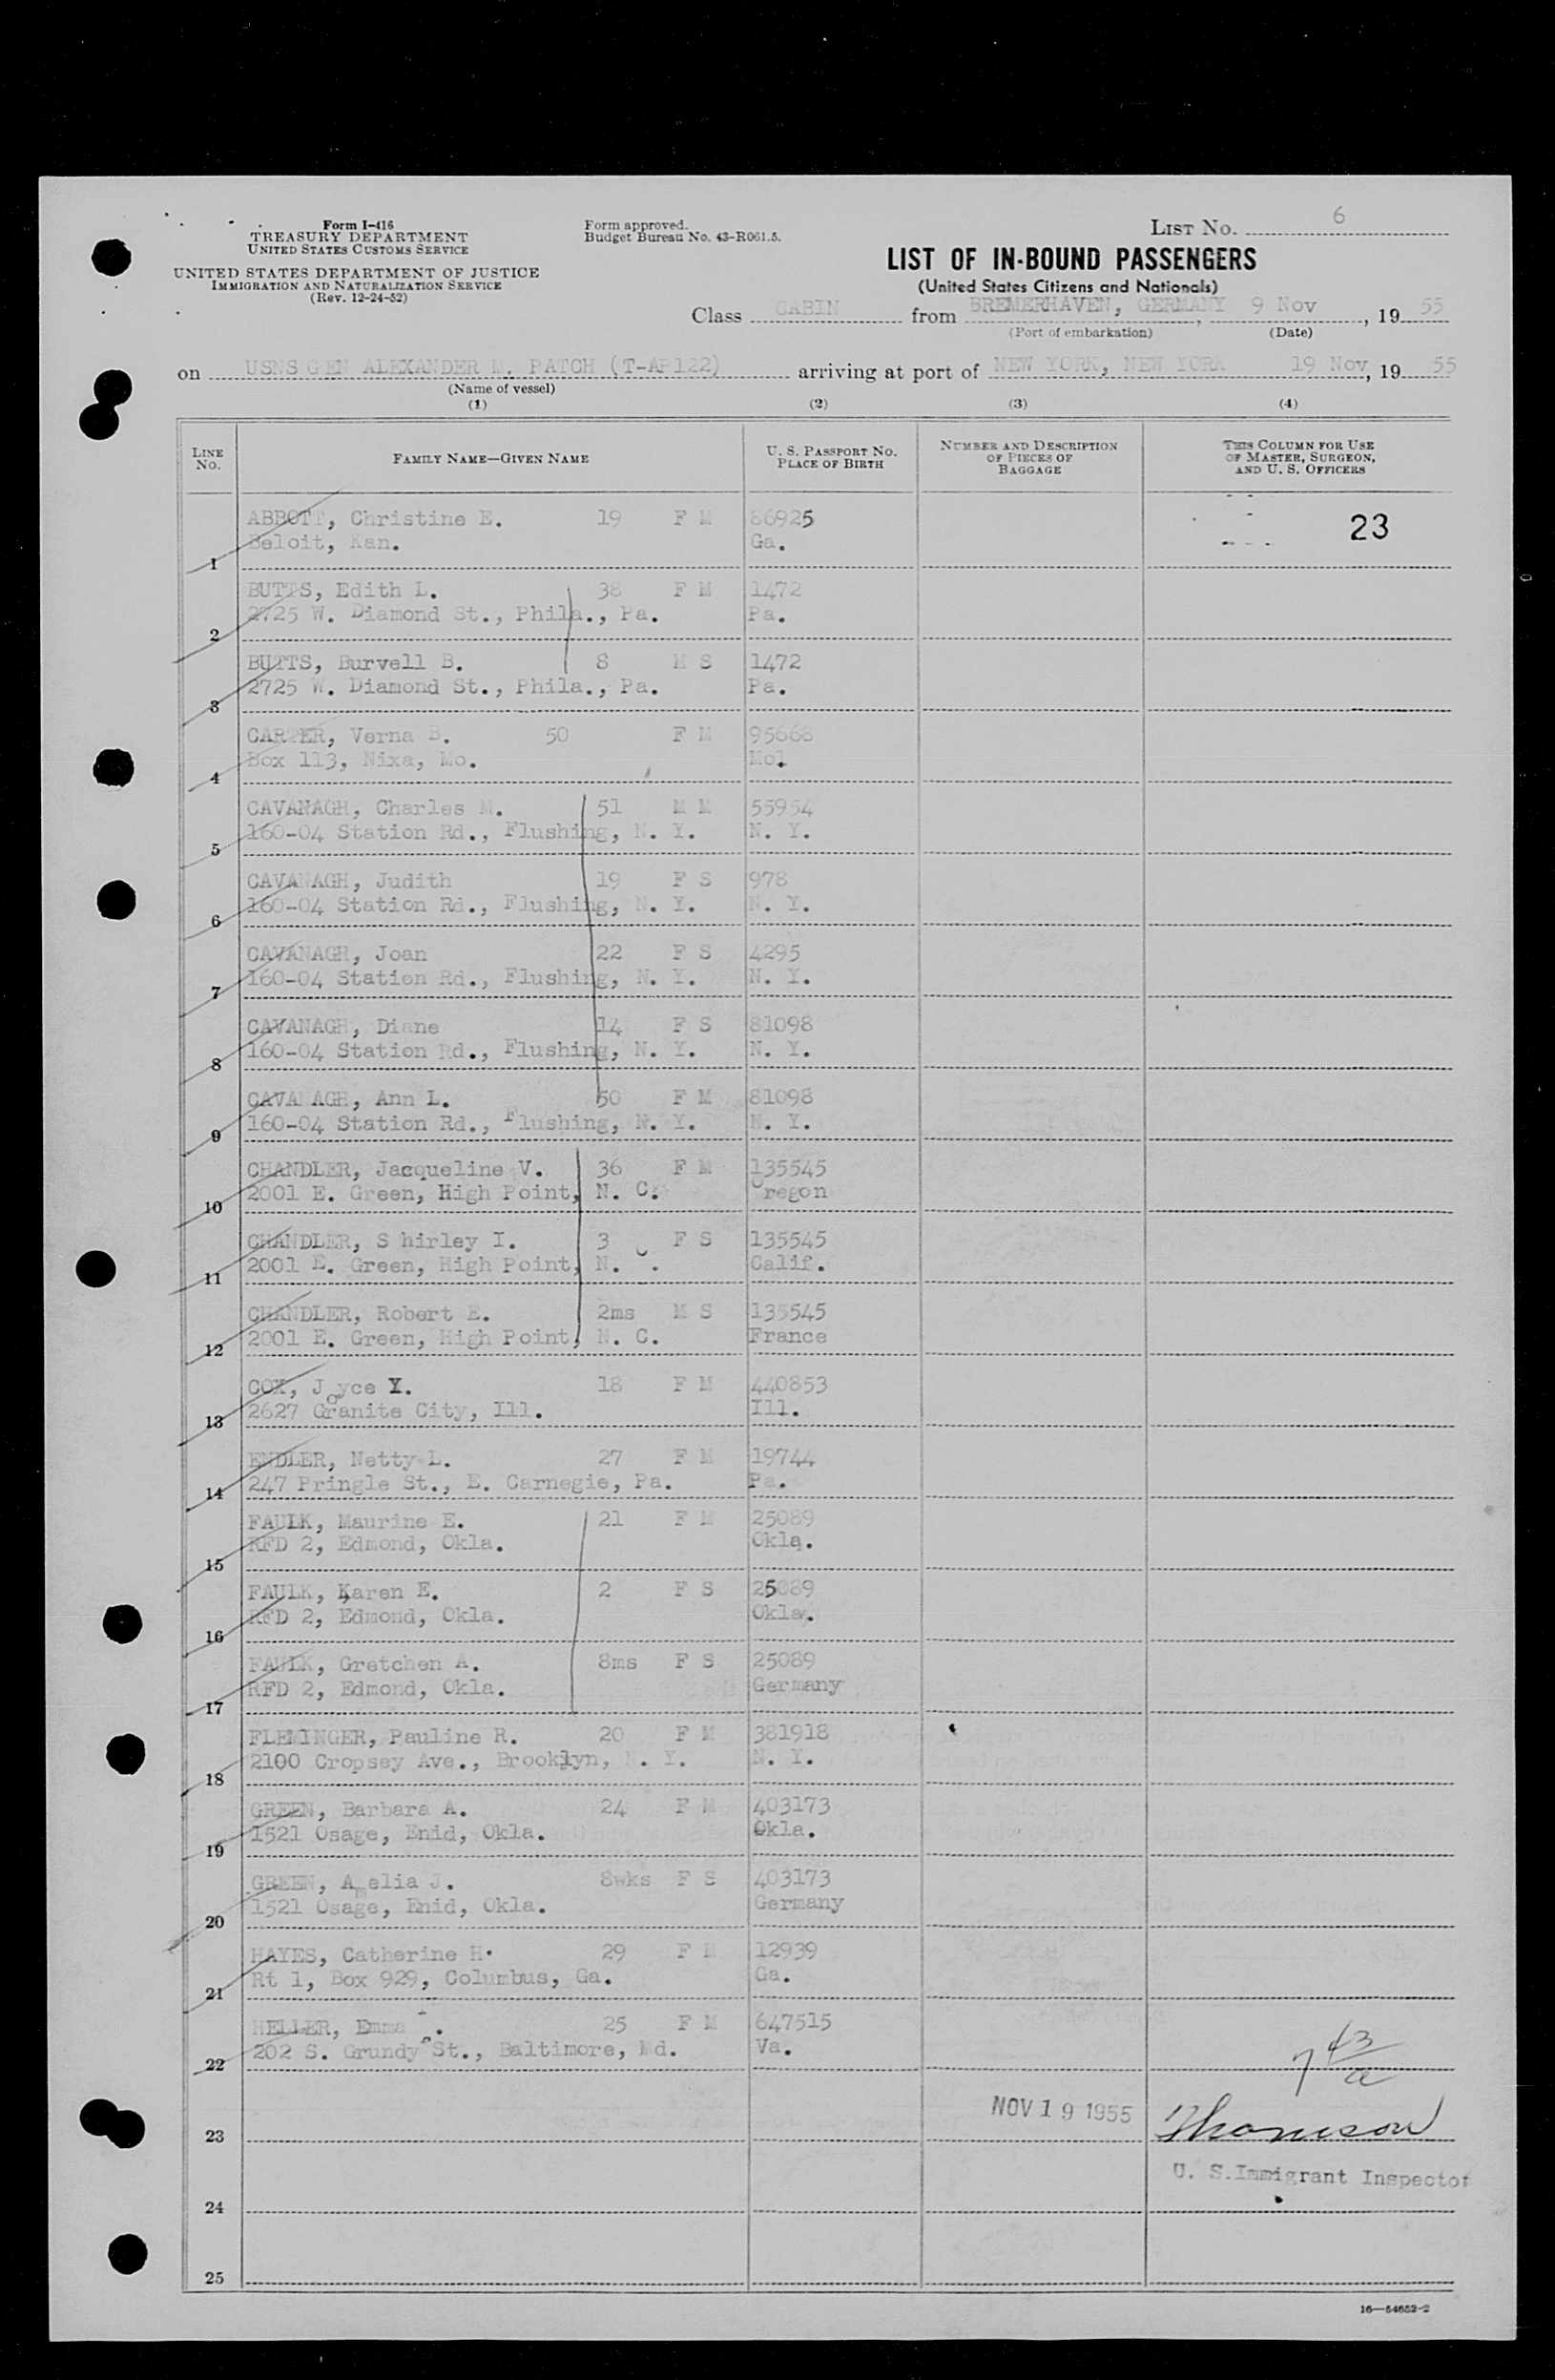 Form I-416
TREASURY DEPARTMENT
UNITED STATES CUSTOMS SERVICE
UNITED STATES DEPARTMENT OF JUSTICE
IMMIGRATION AND NATURALIZATION SERVICE
(Rev. 12-24-52)
Form approved.
Budget Bureau No. 43-R061.5.
LIST No. 6
LIST OF IN-BOUND PASSENGERS
(United States Citizens and Nationals)
Class CABIN from BREMERHAVEN, GERMANY, 9 Nov, 1955
(Port of embarkation) (Date)
on USNS GEN ALEXANDER M. PATCH (T-AP122) arriving at port of NEW YORK, NEW YORK 19 Nov, 1955
(Name of vessel)
(1) (2) (3) (4)
LINE No. FAMILY NAME—GIVEN NAME U. S. PASSPORT No. PLACE OF BIRTH NUMBER AND DESCRIPTION OF PIECES OF BAGGAGE THIS COLUMN FOR USE OF MASTER, SURGEON, AND U. S. OFFICERS
ABBOTT, Christine E. 19 F M 86925 23
1 Beloit, Kan. Ga.
BUTTS, Edith L. 38 F M 1472
2 2725 W. Diamond St., Phila., Pa. Pa.
BUTTS, Burvell B. 8 M S 1472
3 2725 W. Diamond St., Phila., Pa. Pa.
Verna B. 50 F M 95668
4 Box 113, Nixa, Mo. Mo.
CAVANAGH, Charles M. 51 M M 55954
5 160-04 Station Rd., Flushing, N. Y. N. Y.
CAVANAGH, Judith 19 F S 978
6 160-04 Station Rd., Flushing, N. Y. N. Y.
CAVANAGH, Joan 22 F S 4295
7 160-04 Station Rd., Flushing, N. Y. N. Y.
CAVANAGH, Diane 14 F S 81098
8 160-04 Station Rd., Flushing, N. Y. N. Y.
CAVANAGH, Ann L. 50 F M 81098
9 160-04 Station Rd., Flushing, N. Y. N. Y.
CHANDLER, Jacqueline V. 36 F M 135545
10 2001 E. Green, High Point, N. C. Oregon
CHANDLER, S hirley I. 3 F S 135545
11 2001 E. Green, High Point, N. C. Calif.
CHANDLER, Robert E. 2ms M S 135545
12 2001 E. Green, High Point, N. C. France
COX, Joyce Y. 18 F M 440853
13 2627 Granite City, Ill. Ill.
ENDLER, Netty L. 27 F M 19744
14 247 Pringle St., E. Carnegie, Pa. Pa.
FAULK, Maurine E. 21 F M 25089
15 RFD 2, Edmond, Okla. Okla.
FAULK, Karen E. 2 F S 25089
16 RFD 2, Edmond, Okla. Okla.
FAULK, Gretchen A. 8ms F S 25089
17 RFD 2, Edmond, Okla. Germany
FLEMINGER, Pauline R. 20 F M 381918
18 2100 Cropsey Ave., Brooklyn, N. Y. N. Y.
GREEN, Barbara A. 24 F M 403173
19 1521 Osage, Enid, Okla. Okla.
GREEN, Amelia J. 8wks F S 403173
20 1521 Osage, Enid, Okla. Germany
HAYES, Catherine H. 29 F M 12939
21 Rt 1, Box 929, Columbus, Ga. Ga.
HELLER, Emma 25 F M 647515
22 202 S. Grundy St., Baltimore, Md. Va.
NOV 19 1955
23
U. S. Immigrant Inspector
24
25
16—54652-2